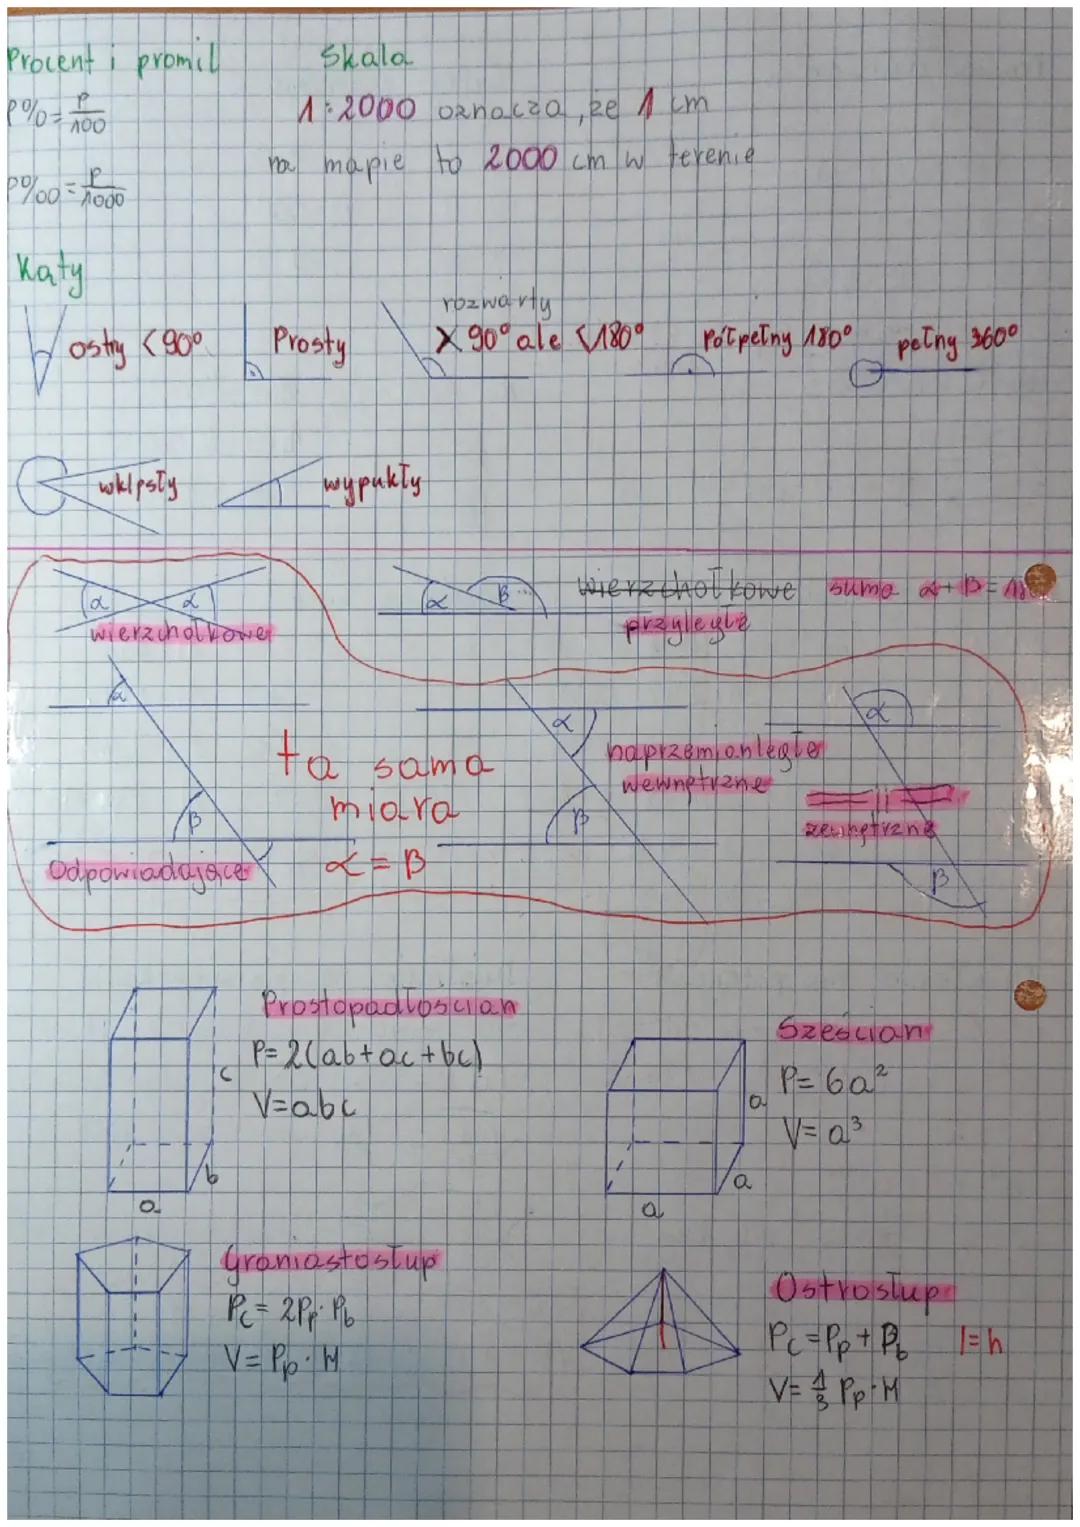 Procent i promil
Skala
p%= p/100
1:2000 oznacza, że 1 cm
na mapie to 2000 cm w terenie
p‰= p/1000
Kąty
ostry <90°
Prosty
rozwarty
>90° ale <180°
półpełny 180°
pełny 360°
wklęsły
wypukły
α α
wierzchołkowe
α β
wierzchołkowe
przyległe
suma α+β=18
α
β
Odpowiadające
ta sama
miara
α=β
α
β
naprzemianległe
wewnętrzne
α
zewnętrzne
β
Prostopadłościan
P=2(ab+ac+bc)
V=abc
c
b
a
Sześcian
P=6a²
V=a³
a
a
a
Graniastosłup
Pc=2Pp·Pb
V=Pp·H
Ostrosłup
Pc=Pp+Pb
V=1/3 Pp·H
|=h